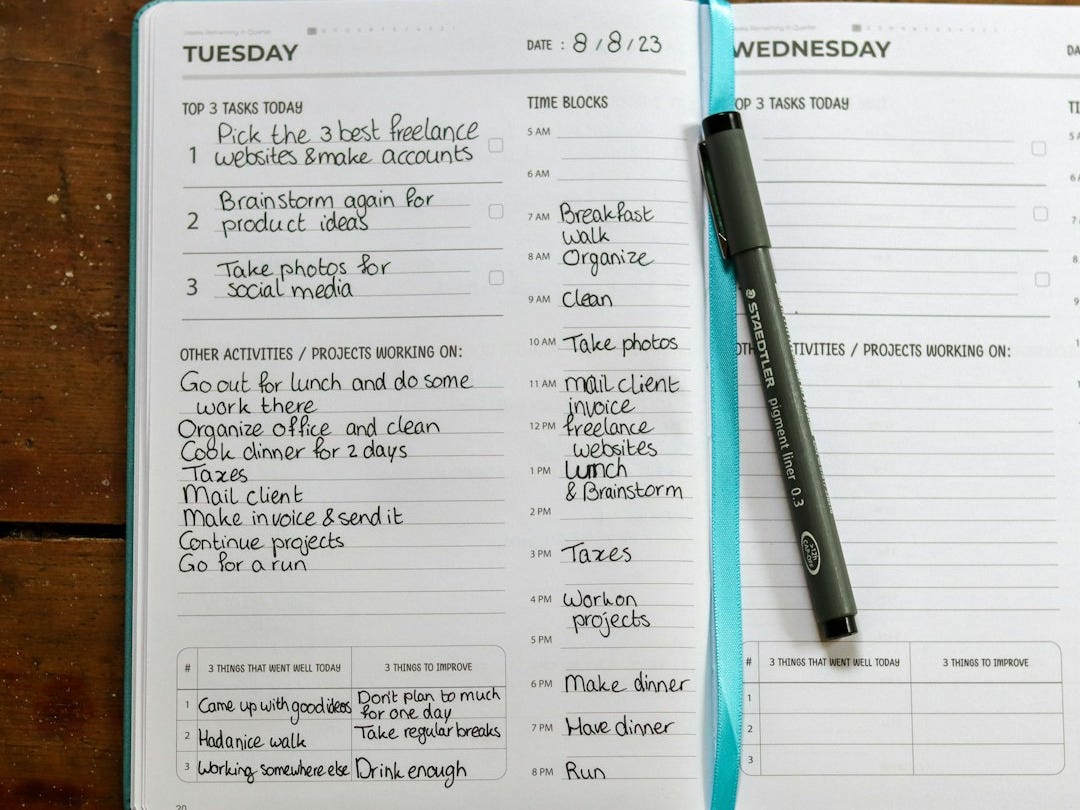 Weeks Remaining In Quarter
TUESDAY
DATE : 8/8/23
TOP 3 TASKS TODAY
1 Pick the 3 best freelance
websites & make accounts
2 Brainstorm again for
product ideas
3 Take photos for
social media
OTHER ACTIVITIES / PROJECTS WORKING ON:
Go out for lunch and do some
work there
Organize office and clean
Cook dinner for 2 days
Taxes
Mail client
Make invoice & send it
Continue projects
Go for a run
# 3 THINGS THAT WENT WELL TODAY 3 THINGS TO IMPROVE
1 Came up with good ideas Don't plan to much
for one day
2 Had a nice walk Take regular breaks
3 Working somewhere else Drink enough
20
TIME BLOCKS
5 AM
6 AM
7 AM Breakfast
walk
8 AM Organize
9 AM Clean
10 AM Take photos
11 AM mail client
invoice
12 PM freelance
websites
1 PM Lunch
& Brainstorm
2 PM
3 PM Taxes
4 PM Work on
projects
5 PM
6 PM Make dinner
7 PM Have dinner
8 PM Run
STAEDTLER pigment liner 0.3
Weeks Remaining In Quarter
WEDNESDAY
DA
OP 3 TASKS TODAY
TI
1
OTH TIVITIES / PROJECTS WORKING ON:
# 3 THINGS THAT WENT WELL TODAY 3 THINGS TO IMPROVE
1
2
3